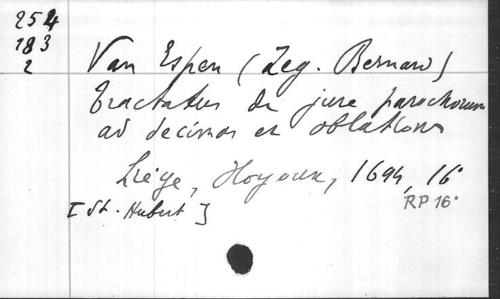 254
183
2
Van Espen (Zeg. Bernard)
Tractatus de jure parochorum
ad decimas et oblationes
Liège, Hoyoux, 1694, 16°
[St. Hubert]
RP 16°